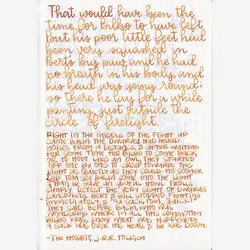 That would have been the
time for Bilbo to have left
but his poor little feet had
been very squashed in
Bert's big paw, and he had
no breath in his body, and
his head was going round;
so there he lay for a while
panting, just outside the
circle of firelight.
Right in the middle of the fight up
came Balin. The dwarves had heard
noises from a distance, and after waiting
for some time for Bilbo to come back,
or to hoot like an owl, they started
off one by one to creep towards the
light as quietly as they could. No sooner
did Tom see Balin come into the light
than he gave an awful howl. Trolls
simply detest the very sight of dwarves
(uncooked). Bert and Bill stopped fighting
immediately, & "a sack, Tom, quick!"
they said. Before Balin, who was
wondering where in all this commotion
Bilbo was, knew what was happening,
a sack was over his head, & he was down.
-The Hobbit, J.R.R. Tolkien